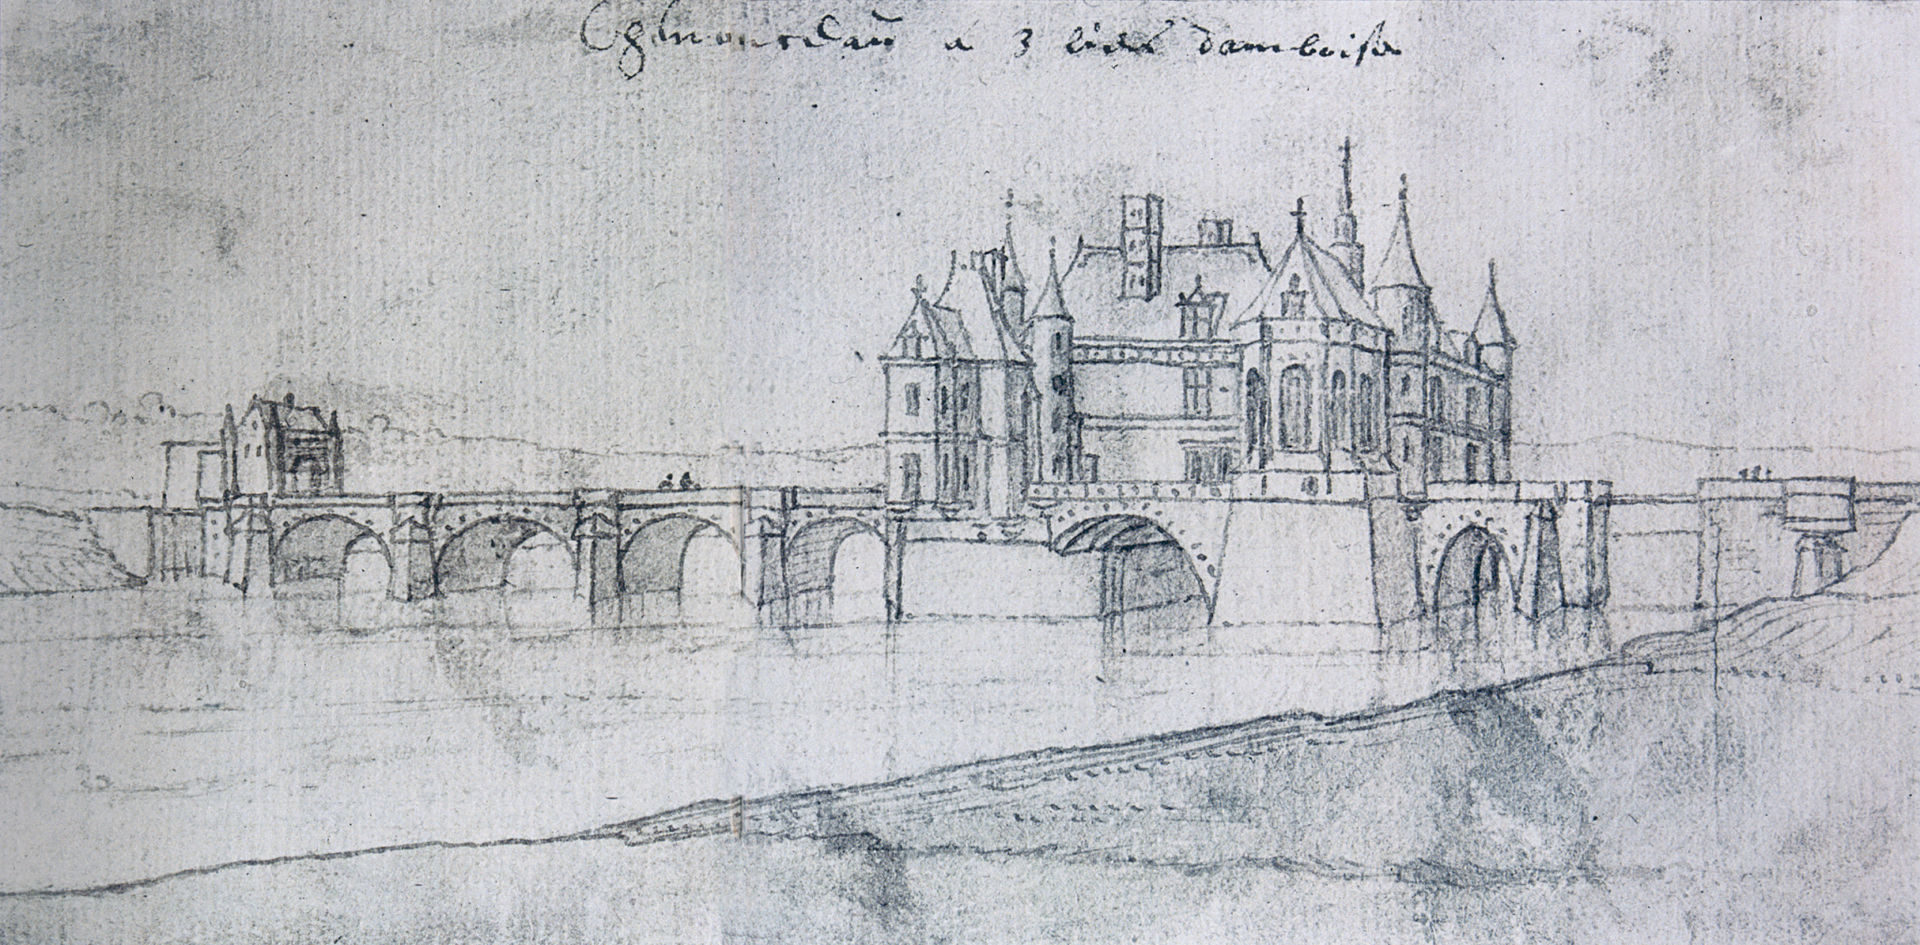 Chenonceau a 3 lieus damboise